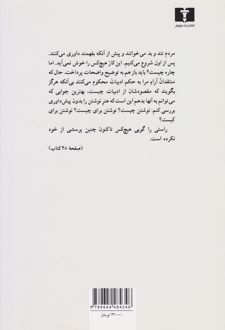 انتشارات نیلوفر
مردم تند و بد می‌خوانند و پیش از آنکه بفهمند داوری می‌کنند.
پس از اول شروع می‌کنیم. این کار هیچ‌کس را خوش نمی‌آید. اما
چاره چیست؟ باید باز هم به توضیح واضحات پرداخت. حال که
منتقدان آراءِ مرا به حکم ادبیات محکوم می‌کنند بی‌آنکه هرگز
بگویند که مقصودشان از ادبیات چیست، بهترین جوابی که
می‌توانم به آنها بدهم این است که هنر نوشتن را بدون پیش‌داوری
بررسی کنم. نوشتن چیست؟ نوشتن برای چیست؟ نوشتن برای
کیست؟
راستی را گویی هیچ‌کس تاکنون چنین پرسشی از خود
نکرده است.
(صفحهٔ ۴۸ کتاب)